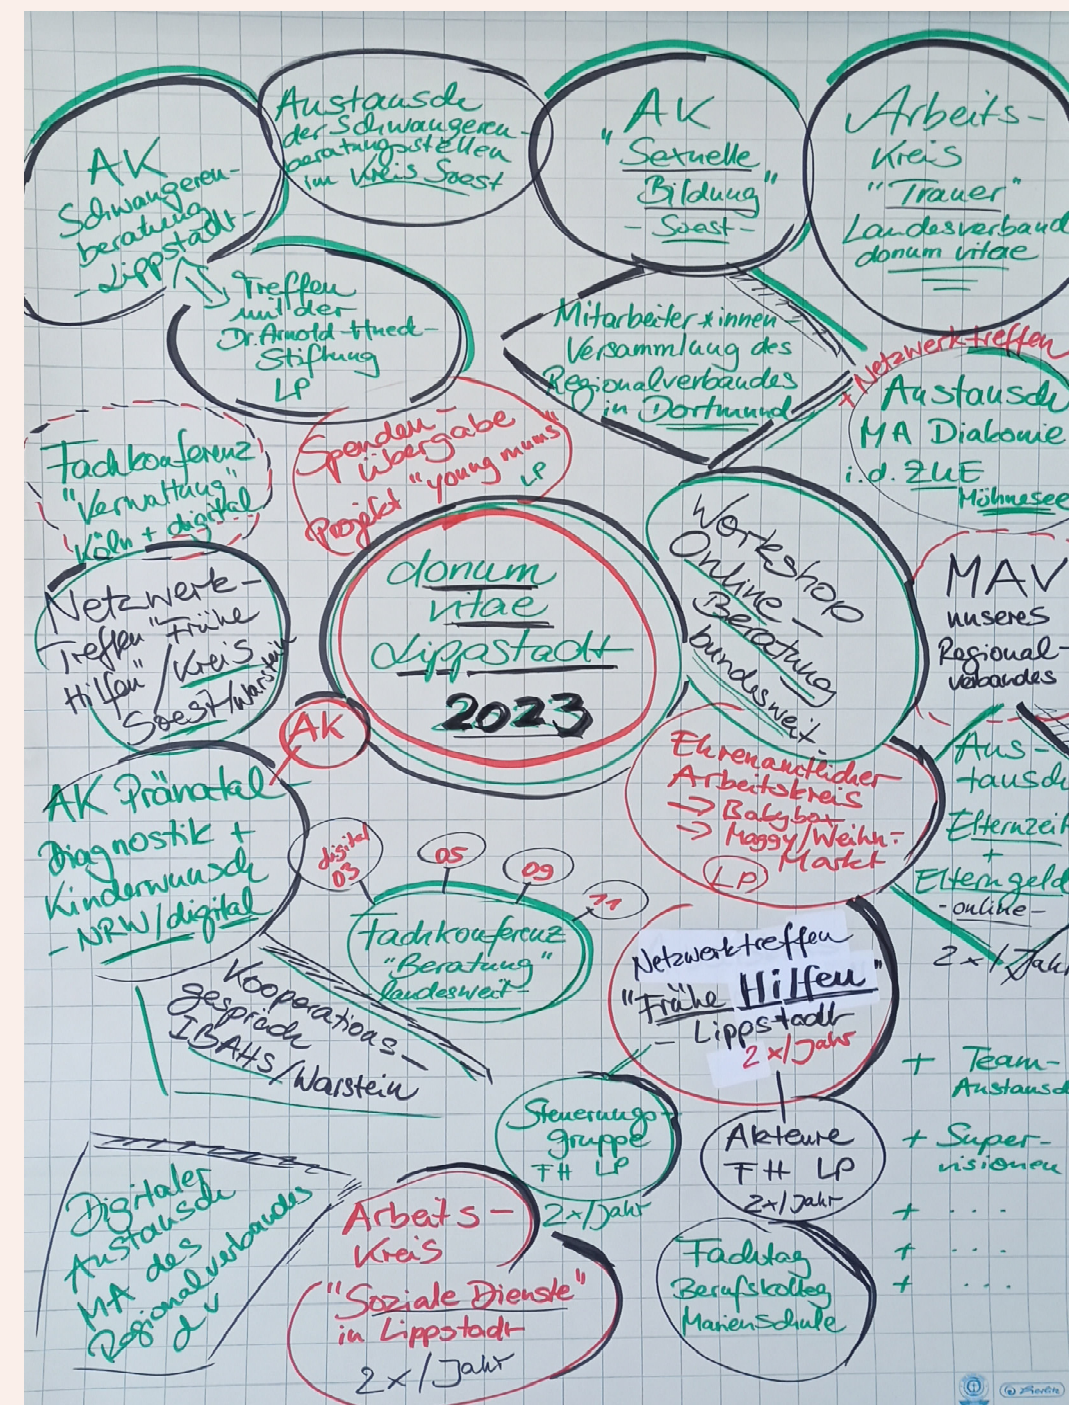 AK
Schwangeren-
beratung
- Lippstadt -
Austausch
der Schwangeren-
beratungsstellen
im Kreis Soest
AK
"Sexuelle
Bildung"
- Soest -
Arbeits-
Kreis
"Trauer"
Landesverband
donum vitae
Treffen
mit der
Dr. Arnold-Hueck-
Stiftung
LP
Mitarbeiter*innen-
Versammlung des
Regionalverbandes
in Dortmund
+ Netzwerktreffen
Austausch
MA Diakonie
i.d. ZUE
Möhnesee
Fachkonferenz
"Verwaltung"
Köln + digital
Spenden-
übergabe
Projekt "young mums"
LP
Workshop
Online-
Beratung
bundesweit
MAV
unseres
Regional-
verbandes
Netzwerk-
Treffen "Frühe
Hilfen" / Kreis
Soest/Warstein
donum
vitae
Lippstadt
2023
AK
AK Pränatal-
Diagnostik +
Kinderwunsch
- NRW/digital
Ehrenamtlicher
Arbeitskreis
→ Babybox
→ Maggy/Weihn.-
Markt
LP
Aus-
tausch
Elternzeit
+
Elterngeld
- online -
2x/Jahr
digital
03
05
09
11
Fachkonferenz
"Beratung"
landesweit
Kooperations-
gespräch
IBAHS/Warstein
Netzwerktreffen
"Frühe Hilfen"
- Lippstadt
2x/Jahr
Steuerungs-
gruppe
FH LP
2x/Jahr
Akteure
FH LP
2x/Jahr
+ Team-
Austausch
+ Super-
visionen
+ ...
+ ...
+ ...
Digitaler
Austausch
MA des
Regionalverbandes
dv
Arbeits-
Kreis
"Soziale Dienste"
in Lippstadt
2x/Jahr
Fachtag
Berufskolleg
Marienschule